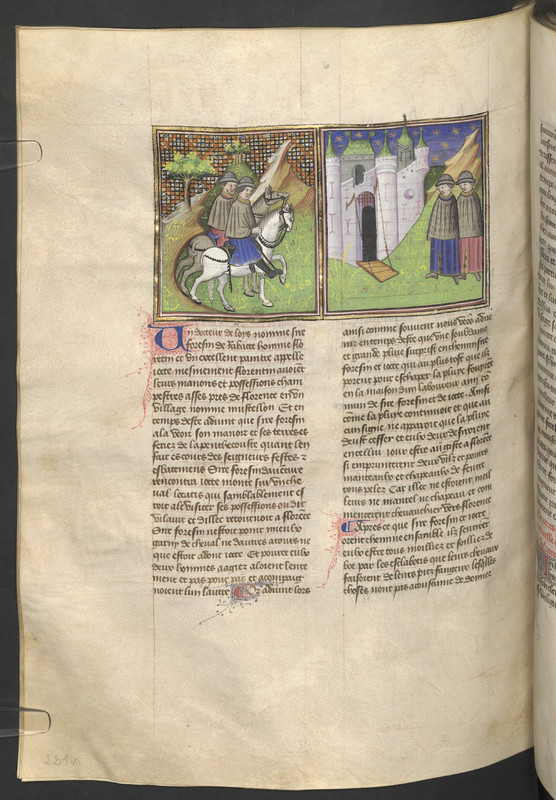 Un docteur de loys nomme sire
foresin de rabatte homme flo
retin et un excellent paintre appelle
iotte mesmement florentin avoient
leurs manoirs et possessions cham
pestres asses pres de florence en un
village nomme Et en
temps deste advint que sire foresin
ala veoir son manoir et ses terres es
feriez de la penthecouste quant len
fait es cours des seigneurs festes et
esbatemens Sire foresin daventure
rencontra iotte monte sur un che
val locatis qui samblablement es
toit ale visiter ses possessions ou dit
vilaige et dillec retournoit a florence
Sire foresin nestoit point mieulx
garny de cheval ne dautres atours ne
que estoit adont iotte Et pource eulx
deux hommes aagiez aloient lente
ment et pas pour pas et acompaig
noient lun lautre Or advint lors
ainsi comme souvent nous veons adve
nir en temps deste que une soubdaine
et grande pluye surprist en chemin sire
foresin et iotte qui au plus tost que ilz
porent pour eschaper la pluye fouyrent
en la maison dun laboureur amy co
mun de sire foresin et de iotte Ainsi
come la pluye continuoit et que au
cun signe ne apparoit que la pluye
deust cesser et eulx deux desiroient
en cellui iour estre au giste a florence
si emprunterent deux vilz et povres
manteaulx et chapeaulx de feutre
tous pelez Car illec ne estoient meil
leurs ne mantel ne chapeau et com
mencerent chevaucher vers florence
Apres ce que sire foresin et iotte
orent chemine ensamble ilz furent
eulx estre tous moilliez et soilliez de
boe par les esclabots que leurs chevaux
faisoient de leurs piez fangeux lesquelles
choses nont pas acoustume de donner
231v